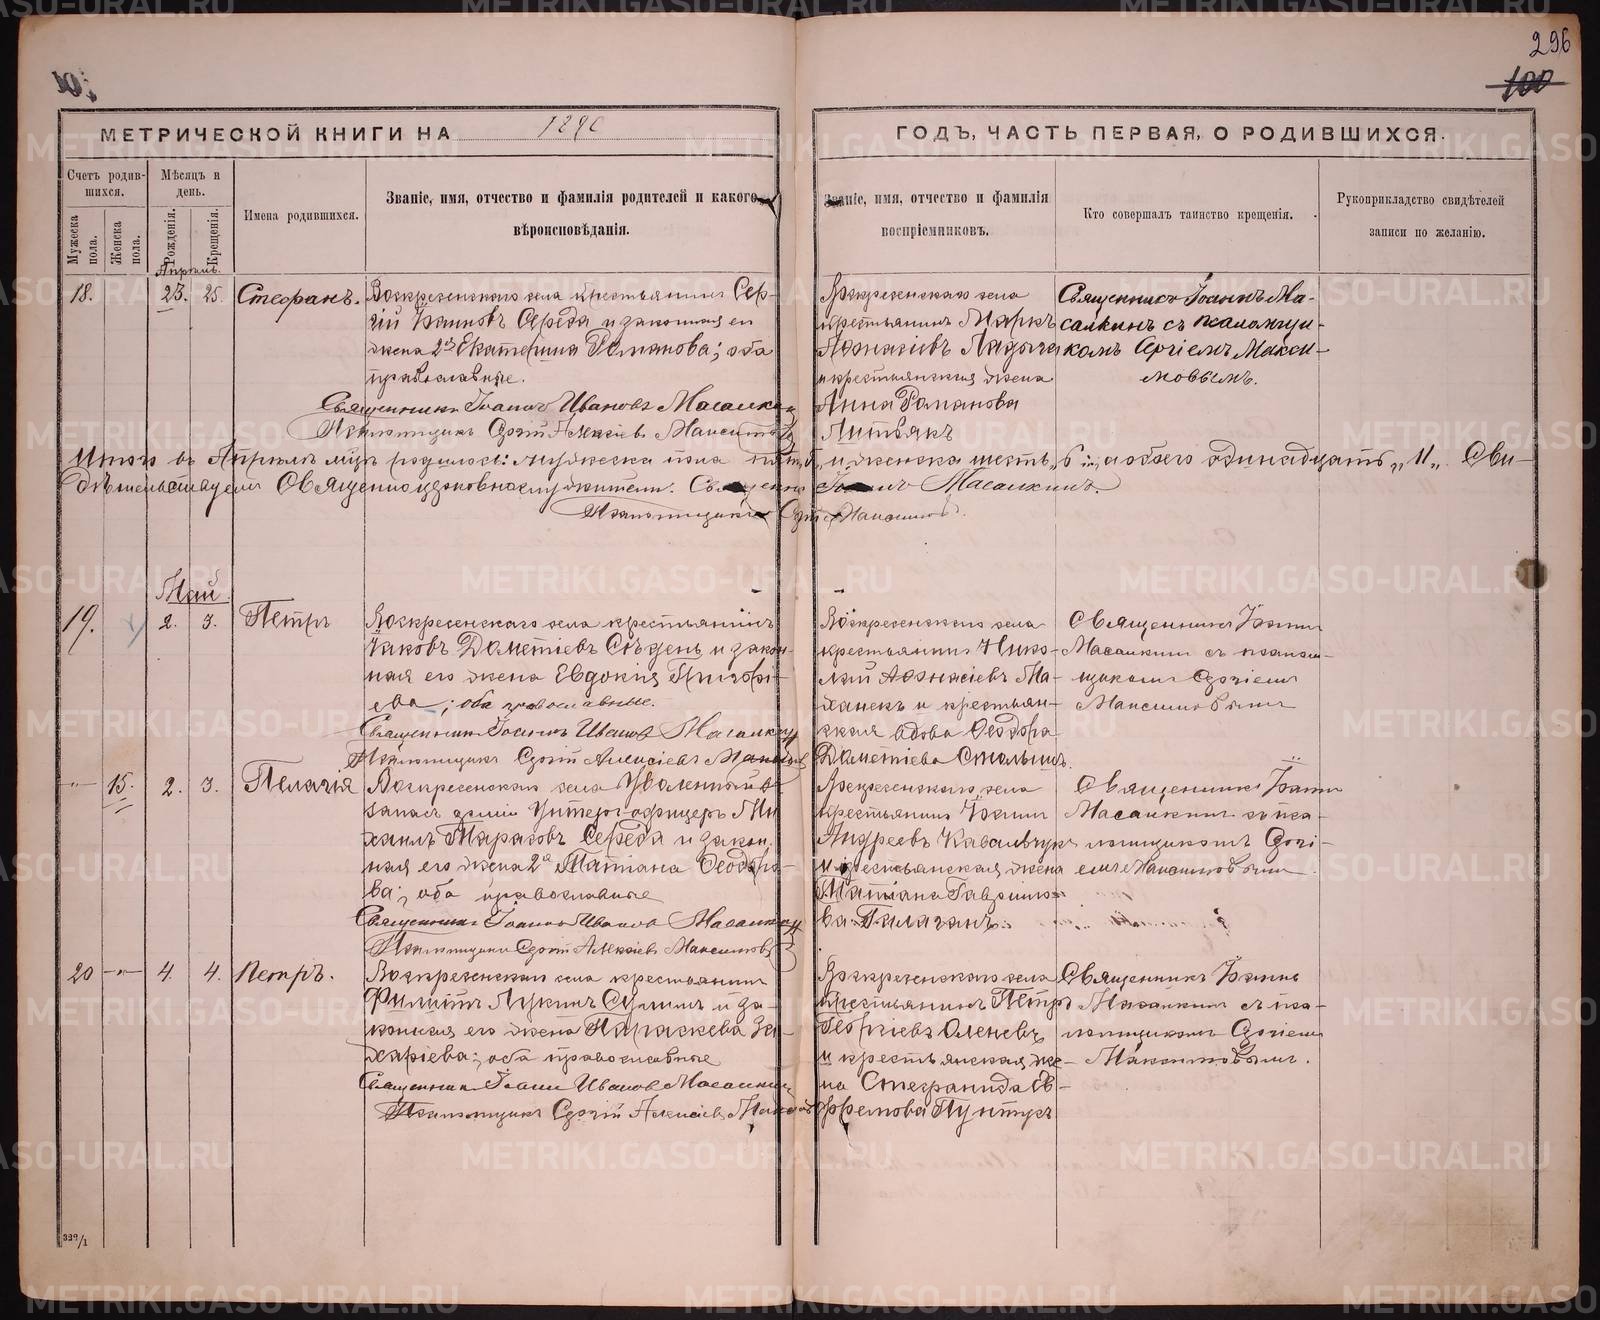 296
100
МЕТРИЧЕСКОЙ КНИГИ НА 1890
ГОДЪ, ЧАСТЬ ПЕРВАЯ, О РОДИВШИХСЯ.
Счетъ родив-
шихся.
Мужеска пола.
Женска пола.
Мѣсяцъ и день.
Рожденія.
Крещенія.
Имена родившихся.
Званіе, имя, отчество и фамилія родителей и какого
вѣроисповѣданія.
Званіе, имя, отчество и фамилія
воспріемниковъ.
Кто совершалъ таинство крещенія.
Рукоприкладство свидѣтелей
записи по желанію.
Апрѣль.
18. 23. 25. Стефанъ.
Воскресенскаго села крестьянинъ Сер-
гій Іоанновъ Середа и законная его
жена 2я Екатерина Романова; оба
православные.
Священникъ Іоаннъ Ивановъ Масалкинъ
Псаломщикъ Сергій Алексіевъ Максимовъ
Воскресенскаго села
крестьянинъ Маркъ
Афанасіевъ Ладыга
и крестьянская жена
Анна Романова
Литвякъ
Священникъ Іоаннъ Ма-
салкинъ съ псаломщи-
комъ Сергіемъ Макси-
мовымъ.
Итого въ Апрѣлѣ мцѣ родилось: мужеска пола пять, и женска шесть „6“, а обоего одинадцать „11“. Сви-
дѣтельствуемъ Священноцерковнослужители: Священникъ Іоаннъ Масалкинъ.
Псаломщикъ Сергій Максимовъ.
Май.
19. 2. 3. Петръ
Воскресенскаго села крестьянинъ
Іаковъ Дометіевъ Съѣдень и закон-
ная его жена Евдокія Григорі-
ева; оба православные.
Священникъ Іоаннъ Ивановъ Масалкинъ
Псаломщикъ Сергій Алексіевъ Максимовъ
Воскресенскаго села
крестьянинъ Нико-
лай Афанасіевъ Ма-
ханекъ и крестьян-
ская вдова Ѳеодора
Дометіева
Священникъ Іоаннъ
Масалкинъ съ псалом-
щикомъ Сергіемъ
Максимовымъ
15. 2. 3. Пелагія
Воскресенскаго села Уволенный въ
запасъ арміи Унтеръ-офицеръ Ми-
хаилъ Тарасовъ Середа и закон-
ная его жена 2я Татіана Ѳеодоро-
ва; оба православные
Священникъ Іоаннъ Ивановъ Масалкинъ
Псаломщикъ Сергій Алексіевъ Максимовъ
Воскресенскаго села
крестьянинъ Іоаннъ
Андреевъ Ковальчукъ
и крестьянская жена
Татіана Гаврило-
ва
Священникъ Іоаннъ
Масалкинъ съ пса-
ломщикомъ Сергі-
емъ Максимовымъ.
20 4. 4. Петръ.
Воскресенскаго села крестьянинъ
Филиппъ Лукинъ Сулимъ и за-
конная его жена Параскева За-
харіева; оба православные
Священникъ Іоаннъ Ивановъ Масалкинъ
Псаломщикъ Сергій Алексіевъ Максимовъ
Воскресенскаго села
крестьянинъ Петръ
Георгіевъ Оленевъ
и крестьянская же-
на Стефанида Ев-
фремова Пунтусъ
Священникъ Іоаннъ
Масалкинъ съ пса-
ломщикомъ Сергіемъ
Максимовымъ.
322/1
METRIKI.GASO-URAL.RU